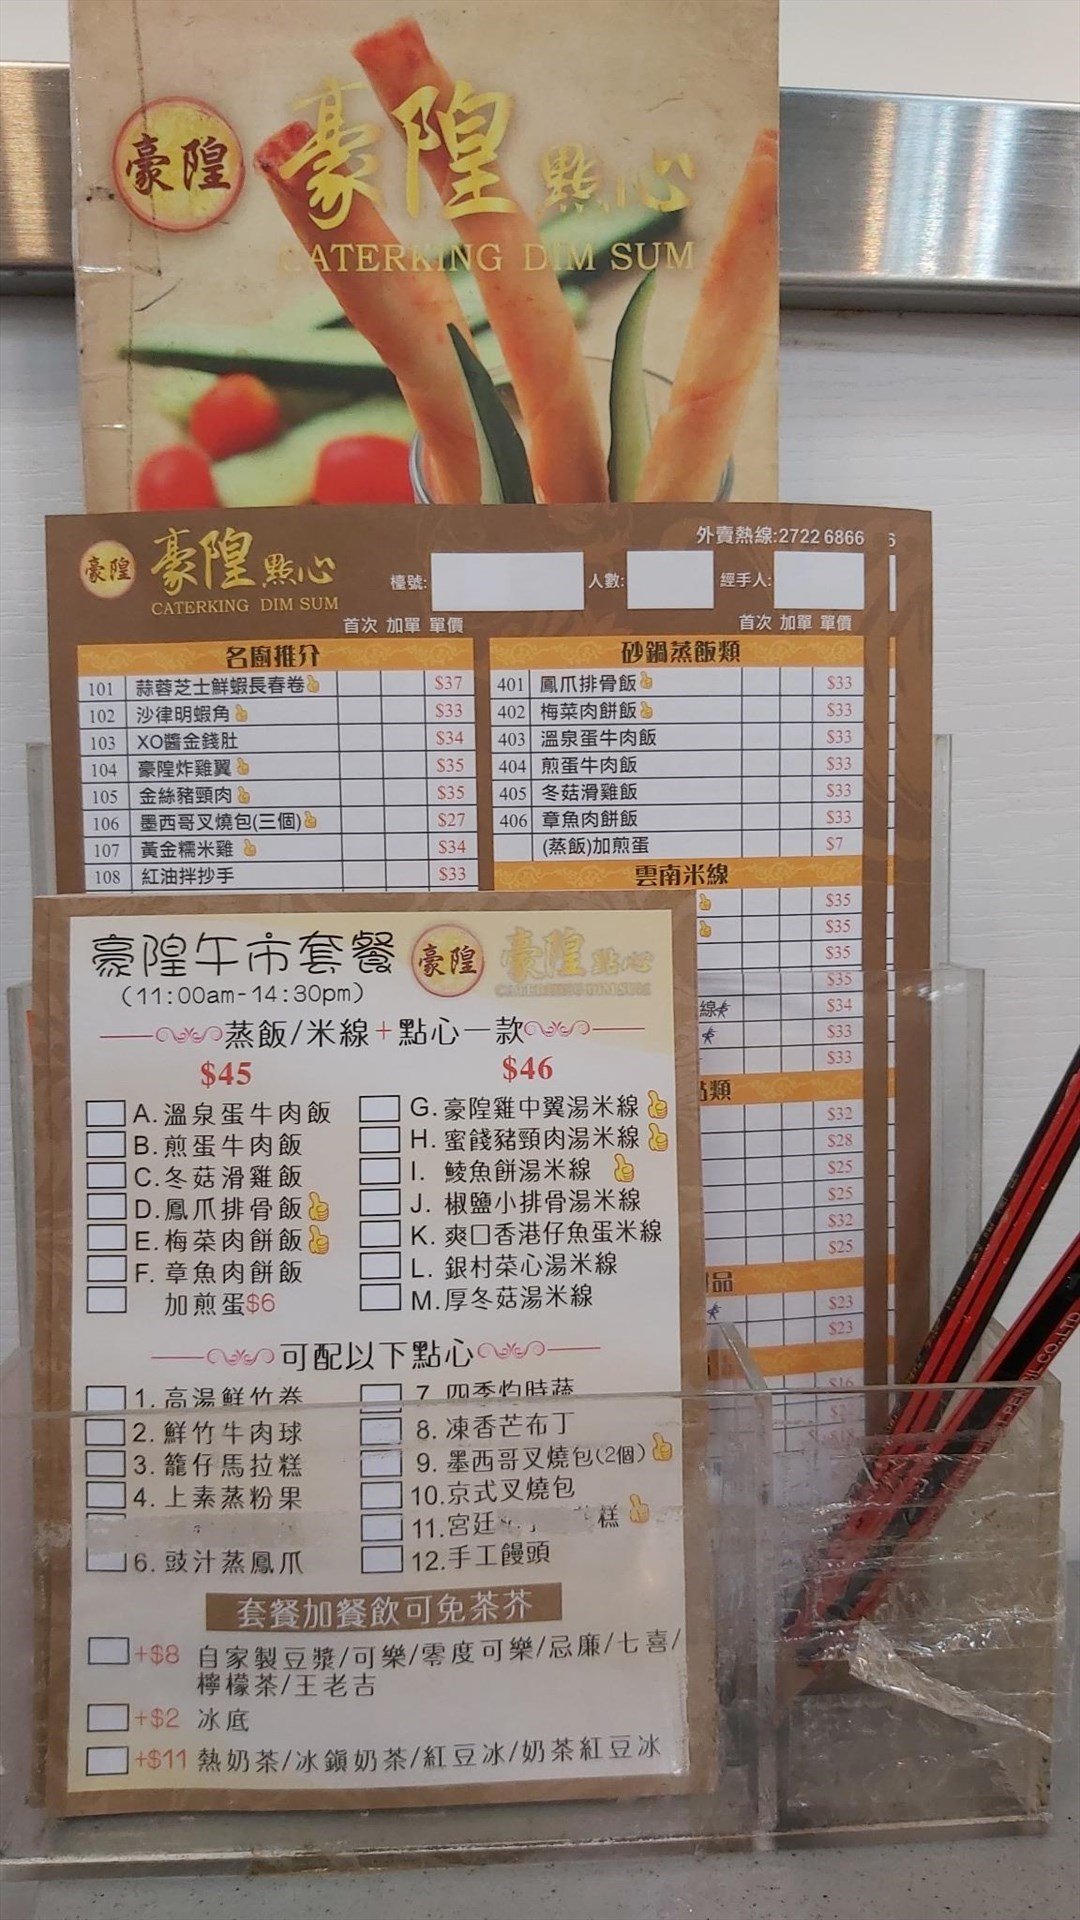 豪隍
豪隍 點心
CATERKING DIM SUM
外賣熱線:2722 6866
豪隍
豪隍 點心
CATERKING DIM SUM
檯號: 人數: 經手人:
首次 加單 單價
名廚推介
101 蒜蓉芝士鮮蝦長春卷 $37
102 沙律明蝦角 $33
103 XO醬金錢肚 $34
104 豪隍炸雞翼 $35
105 金絲豬頸肉 $35
106 墨西哥叉燒包(三個) $27
107 黃金糯米雞 $34
108 紅油拌抄手 $33
首次 加單 單價
砂鍋蒸飯類
401 鳳爪排骨飯 $33
402 梅菜肉餅飯 $33
403 溫泉蛋牛肉飯 $33
404 煎蛋牛肉飯 $33
405 冬菇滑雞飯 $33
406 章魚肉餅飯 $33
(蒸飯)加煎蛋 $7
雲南米線
$35
$35
$35
$35
線 $34
$33
$33
類
$32
$28
$25
$25
$32
$25
品
$23
$23
$16
豪隍午市套餐
豪隍
豪隍 點心
CATERKING DIM SUM
(11:00am-14:30pm)
蒸飯/米線+點心一款
$45
A.溫泉蛋牛肉飯
B.煎蛋牛肉飯
C.冬菇滑雞飯
D.鳳爪排骨飯
E.梅菜肉餅飯
F.章魚肉餅飯
加煎蛋$6
$46
G.豪隍雞中翼湯米線
H.蜜餞豬頸肉湯米線
I.鯪魚餅湯米線
J.椒鹽小排骨湯米線
K.爽口香港仔魚蛋米線
L.銀村菜心湯米線
M.厚冬菇湯米線
可配以下點心
1.高湯鮮竹卷
2.鮮竹牛肉球
3.籠仔馬拉糕
4.上素蒸粉果
6.豉汁蒸鳳爪
7.四季灼時蔬
8.凍香芒布丁
9.墨西哥叉燒包(2個)
10.京式叉燒包
11.宮廷 糕
12.手工饅頭
套餐加餐飲可免茶芥
+$8 自家製豆漿/可樂/零度可樂/忌廉/七喜/
檸檬茶/王老吉
+$2 冰底
+$11 熱奶茶/冰鎮奶茶/紅豆冰/奶茶紅豆冰